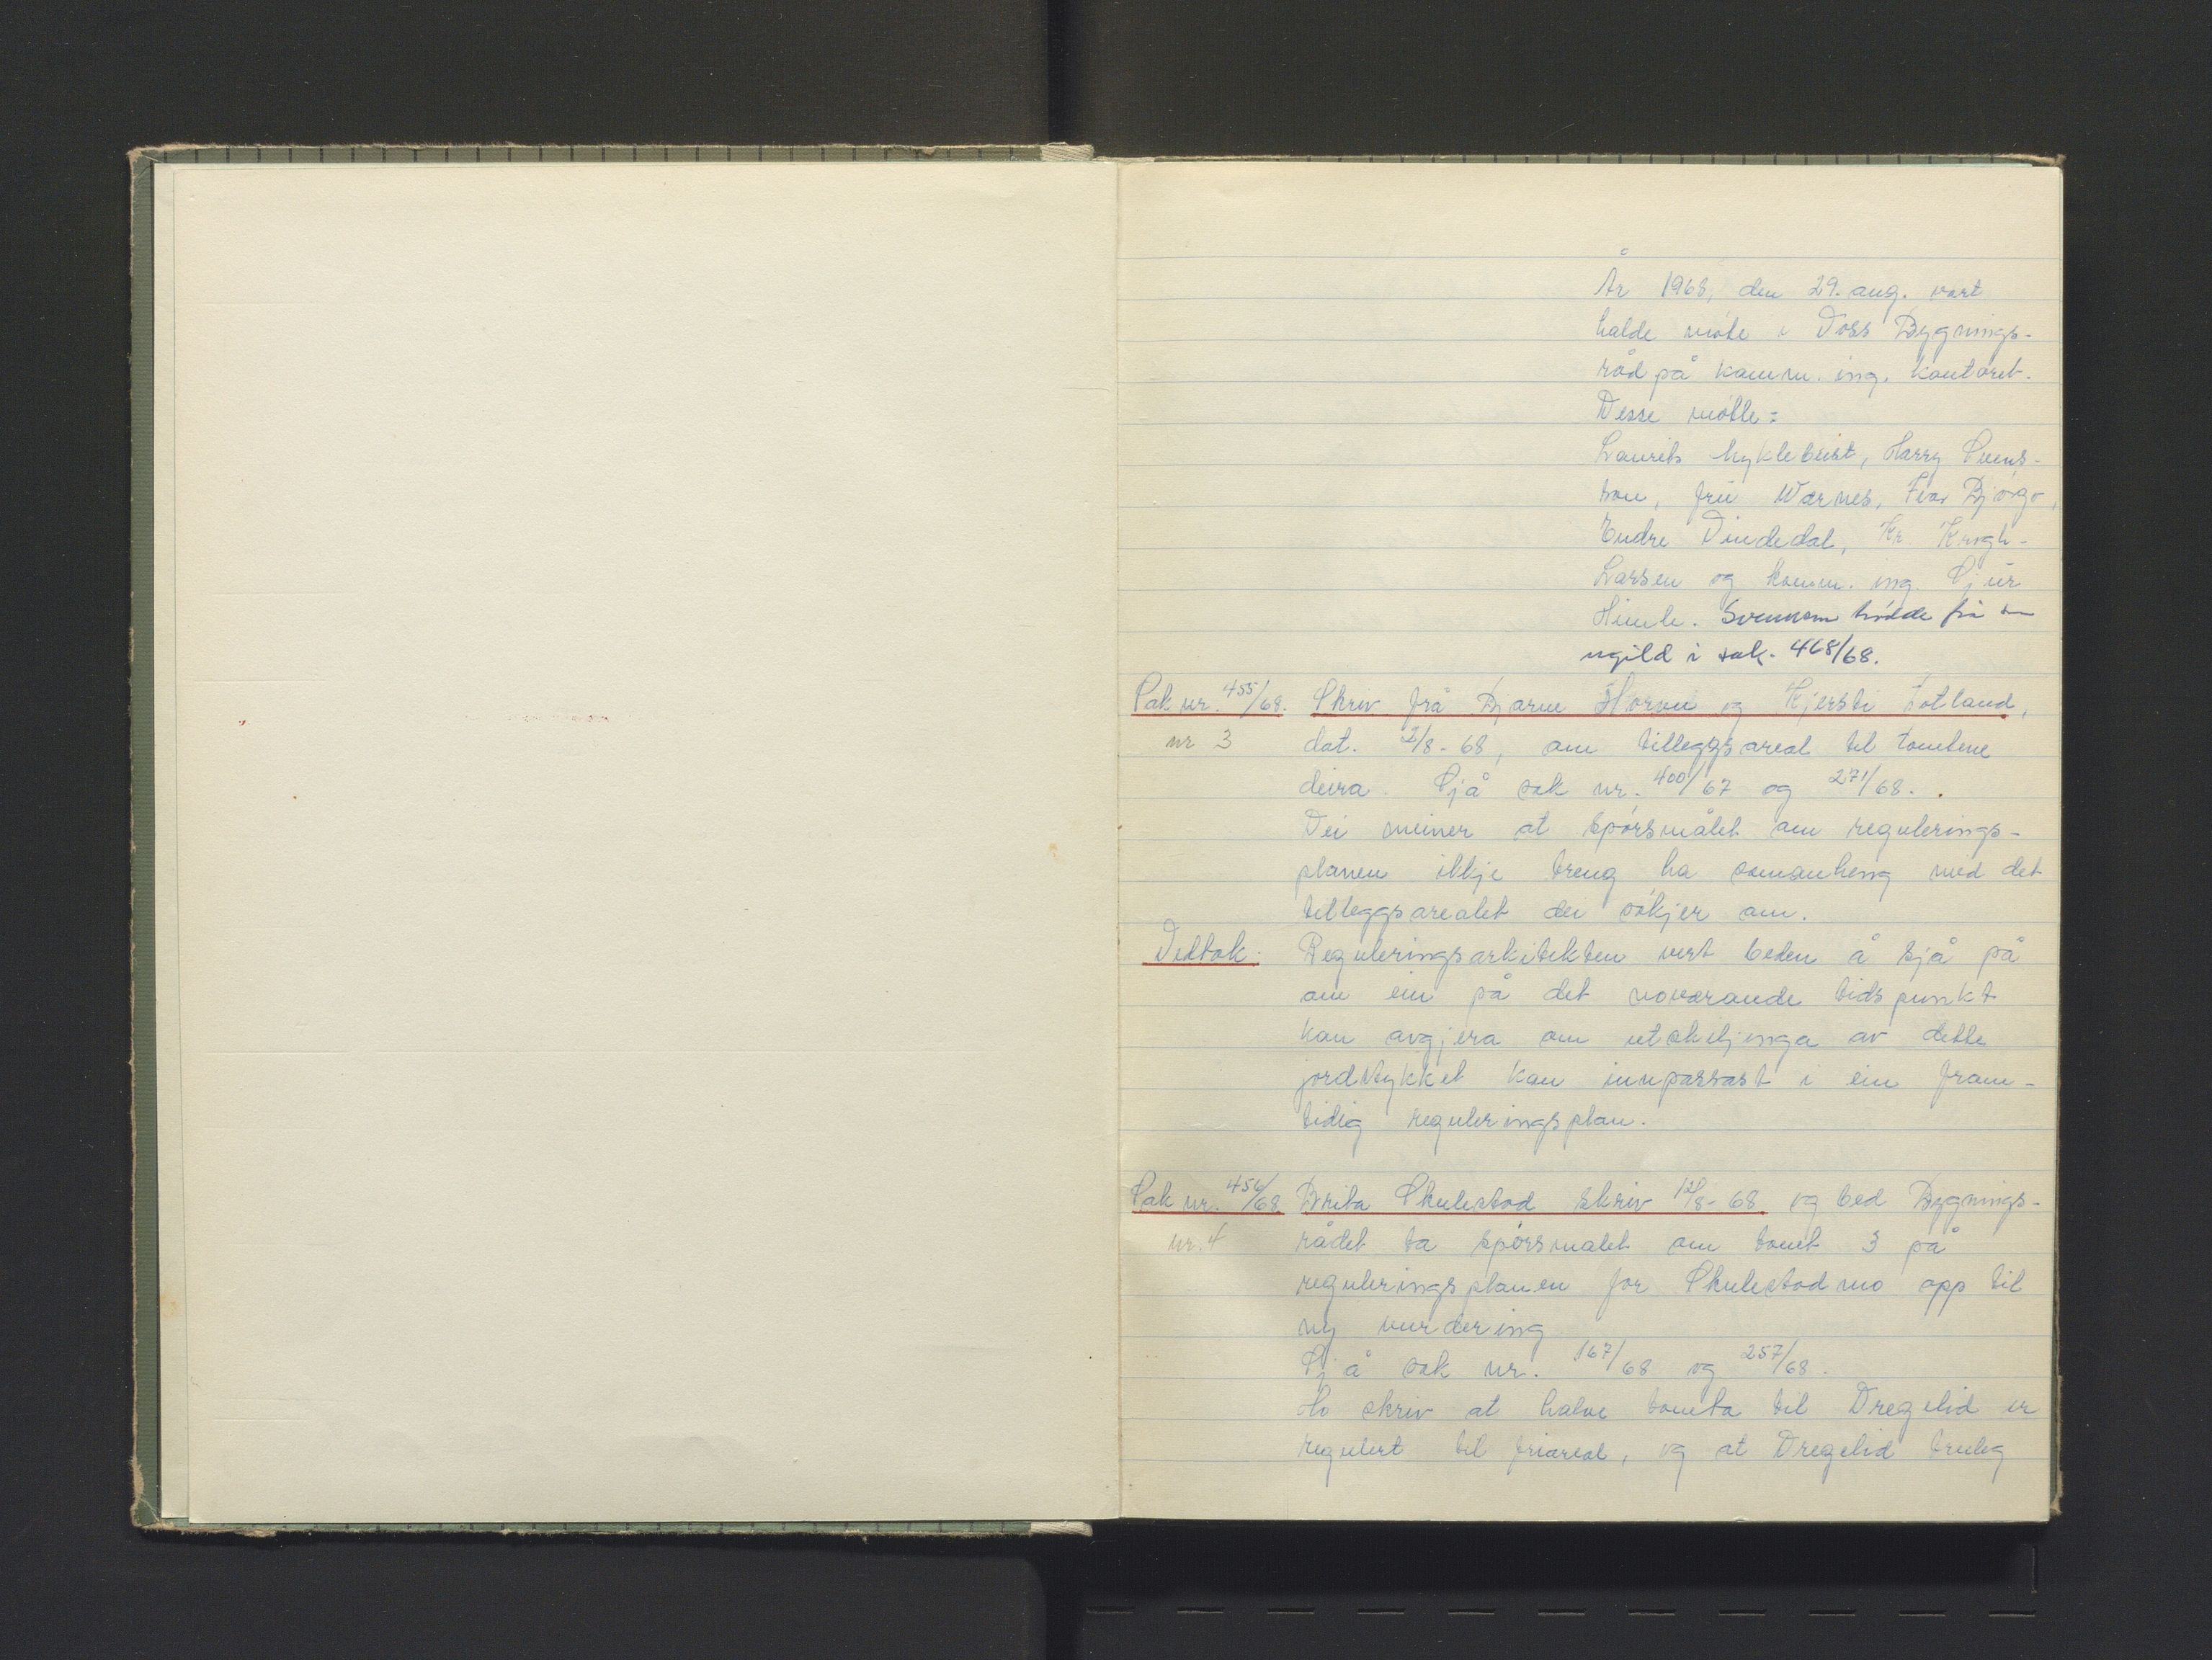 År 1968, den 29. aug. vart
halde møte i Voss Bygnings-
råd på komm. ing. kontoret.
Desse møtte:
Laurits Myklebust, Harry Svens-
son, fru Wærnes, Ivar Bjørgo,
Endre Vindedal, Kr. Krogh-
Larsen og komm. ing. Sjur
Himle. Svensson trådde frå som
ugild i sak. 468/68.
Sak nr. 455/68. Skriv frå Bjarne Horvei og Kjersti Totland,
nr 3 dat. 2/8-68, om tilleggsareal til tomtene
deira. Sjå sak nr. 400/67 og 271/68.
Dei meiner at spørsmålet om regulerings-
planen ikkje treng ha samanheng med det
tilleggsarealet dei søkjer om.
Vedtak: Reguleringsarkitekten vert beden å sjå på
om ein på det noverande tidspunkt
kan avgjera om utskiljinga av dette
jordstykket kan innpassast i ein fram-
tidig reguleringsplan.
Sak nr. 456/68 Brita Skulestad skriv 12/8-68 og bed Bygnings-
nr. 4 rådet ta spørsmålet om tomt 3 på
reguleringsplanen for Skulestadmo opp til
ny vurdering
Sjå sak nr. 167/68 og 257/68.
Ho skriv at halve tomta til Dregelid er
regulert til friareal, og at Dregelid truleg